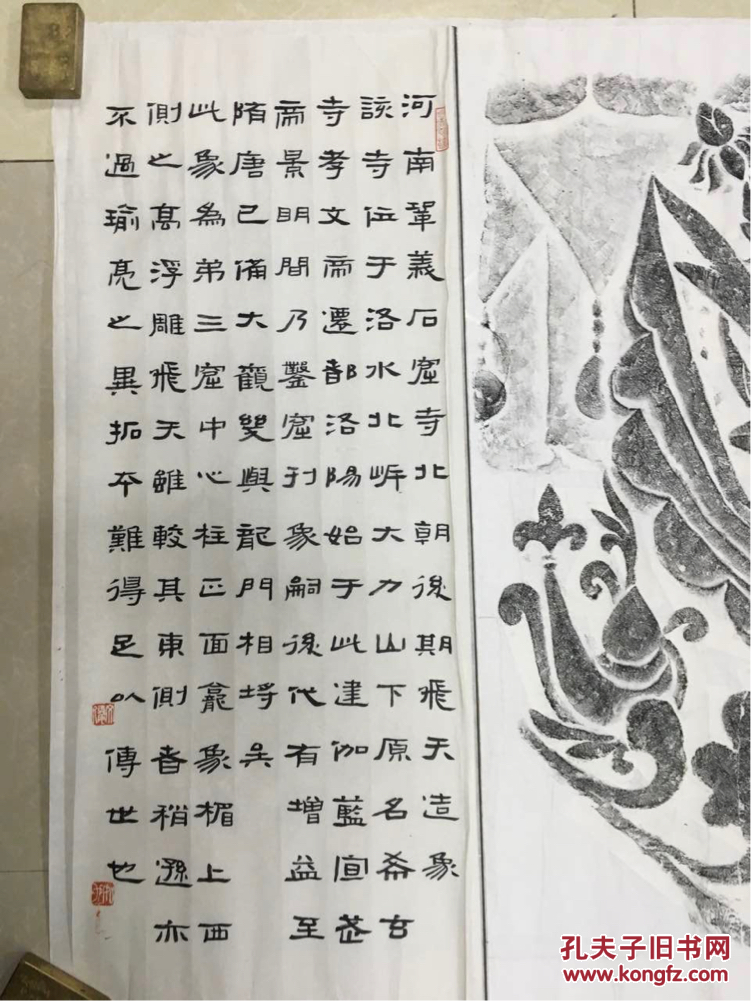 河南鞏義石窟寺北朝後期飛天造象
該寺位于洛水北岸大力山下原名希玄
寺孝文帝遷都洛陽始于此建伽藍宣武
帝景明間乃鑿窟刊象嗣後代有增益至
隋唐已備大觀雙與龍門相埒矣
此象為弟三窟中心柱正面龕象楣上西
側之髙浮雕飛天雖較其東側者稍遜亦
不過瑜亮之異拓本難得足以傳世也
孔夫子旧书网
www.kongfz.com